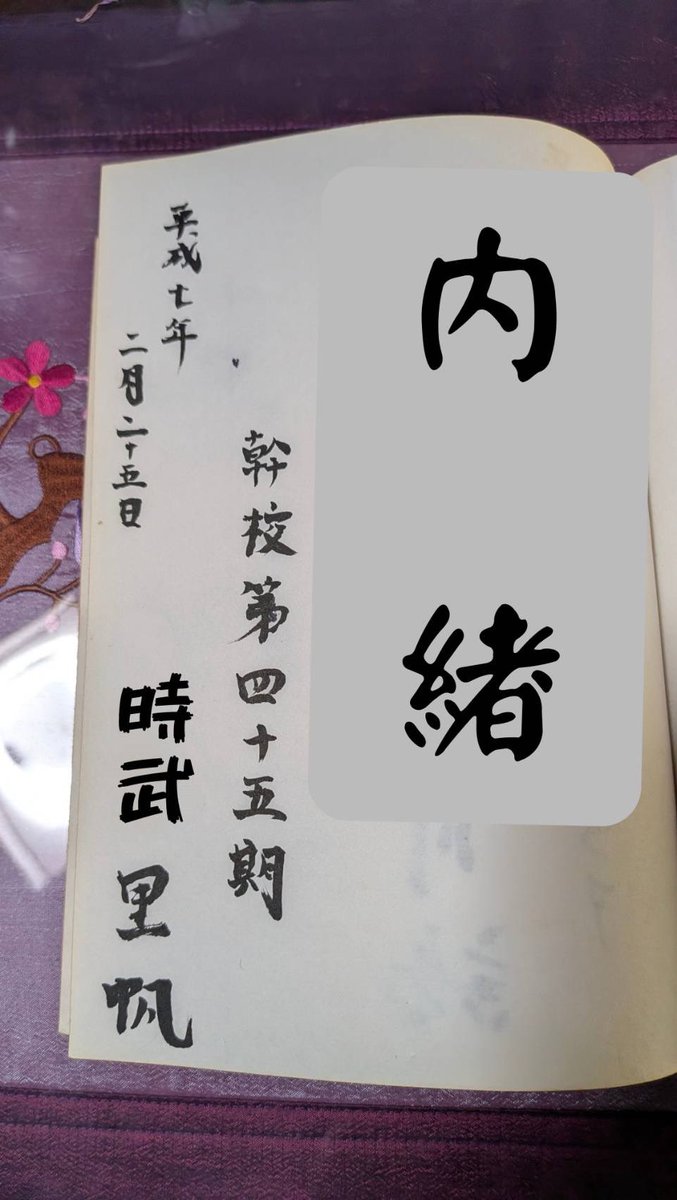 内緒
幹校第四十五期
平成七年
二月二十五日
時武里帆